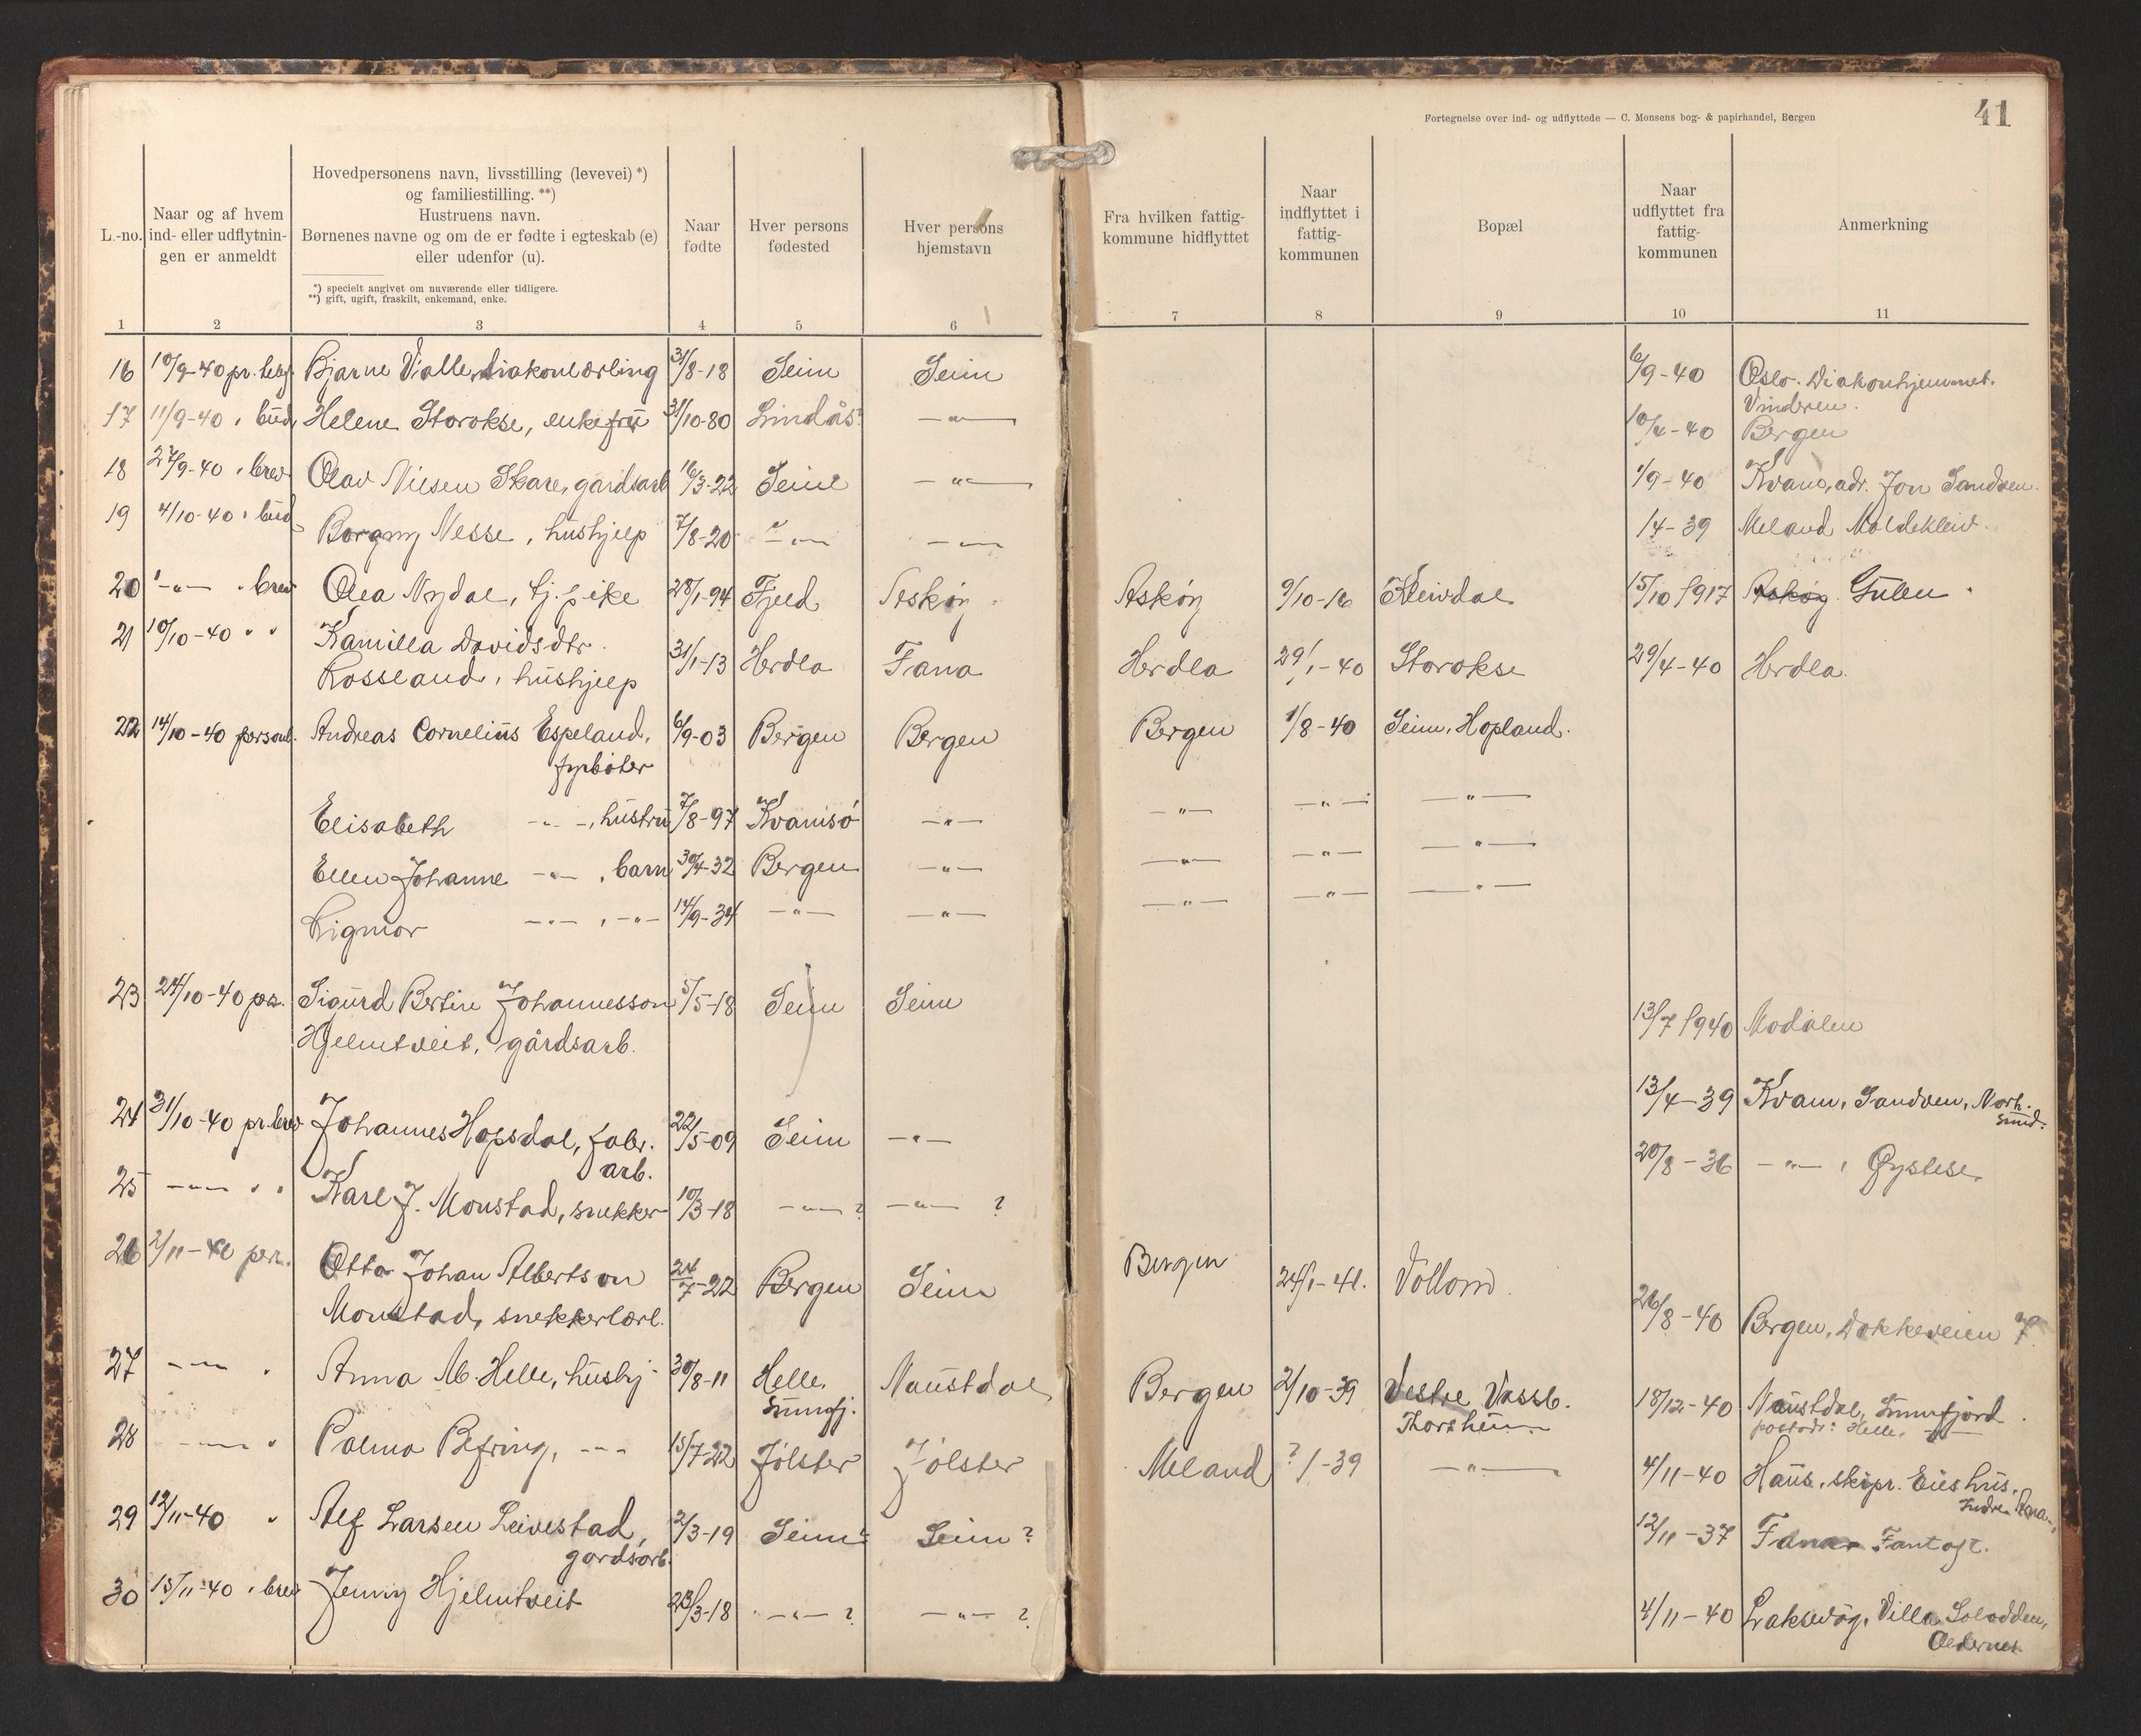 Fortegnelse over ind- og udflyttede — C. Monsens bog- & papirhandel, Bergen
41
L.-no.
Naar og af hvem ind- eller udflytnin-gen er anmeldt
Hovedpersonens navn, livsstilling (levevei) *)
og familiestilling. **)
Hustruens navn.
Børnenes navne og om de er fødte i egteskab (e)
eller udenfor (u).
*) specielt angivet om nuværende eller tidligere.
**) gift, ugift, fraskilt, enkemand, enke.
Naar fødte
Hver persons fødested
Hver persons hjemstavn
Fra hvilken fattig-kommune hidflyttet
Naar indflyttet i fattig-kommunen
Bopæl
Naar udflyttet fra fattig-kommunen
Anmerkning
1 2 3 4 5 6 7 8 9 10 11
16 10/9-40 pr. Bjarne Valle, diakonlærling 31/8-18 Seim Seim 6/9-40 Oslo. Diakonhjemmet.
Vinderen.
17 11/9-40 " bud Helene Storokse, enkefrü 31/10-80 Lindås? —"— 10/4-40 Bergen
18 27/9-40 " brev Olav Nilsen Skare, gårdsarb 16/3-22 Seim —"— 1/9-40 Kvam, adr. Jon Sandven.
19 4/10-40 " bud Borgny Nesse, hushjelp 7/8-20 —"— —"— 14-39 Meland Moldekleiv.
20 —"— " brev Olea Nydal, tj.pike 28/1-94 Fjeld Askøy Askøy 9/10-16 Eleivdal 15/10 1917 Askøy Gulen
21 10/10-40 " " Kamilla Davidsdtr.
Rossland, hushjelp 31/1-13 Herdla Fana Herdla 29/1-40 Storokse 29/4-40 Herdla.
22 14/10-40 personl. Andreas Cornelius Espeland, 6/9-03 Bergen Bergen Bergen 1/8-40 Seim, Hopland.
fyrbøter
Elisabeth —"—, hustru 7/8-97 Kvamsø —"— —"— —"— —"—
Ellen Johanne —"—, barn 30/4-32 Bergen —"— —"— —"— —"—
Rigmor —"—, —"— 14/9-34 —"— —"— —"— —"— —"—
23 24/10-40 pers. Sigurd Bertin Johannesson 5/5-18 Seim Seim 13/7 1940 Modalen
Hjelmtveit, gårdsarb.
24 31/10-40 pr. brev Johannes Hopsdal, fabr. 22/5-09 Seim —"— 13/4-39 Kvam, Sandven, Norh.
arb. sund.
25 —"— " " Karl J. Monstad, snekker 10/3-18 —"— ? —"— ? 20/8-36 —"—, Øystese.
26 2/11-40 per. Otto Johan Albertson 24/7-22 Bergen Seim Bergen 24/1-41. Vollom
Monstad, snekkerlærl. 26/8-40 Bergen, Dokkeveien 7.
27 —"— " Anna M. Helle, hushj. 30/8-11 Helle, Naustdal Bergen 2/10-39 Vestre Vassb. 18/12-40 Naustdal, Sunnfjord.
Sunnfj. Thorsheim postadr: Helle. —"—
28 —"— " Palma Befring, —"— 15/7-22 Jølster Jølster Meland ? /-39 —"— 4/11-40 Haus, skipr. Eieshus,
Indre Arna.
29 12/11-40 " Alf Larsen Leivestad, 2/3-19 Seim? Seim? 12/11-37 Fana Fantoft.
gardsarb.
30 15/11-40 " brev Jenny Hjelmtveit 23/3-18 —"— ? —"— ? 4/11-40 Laksevåg. Villa Solodden,